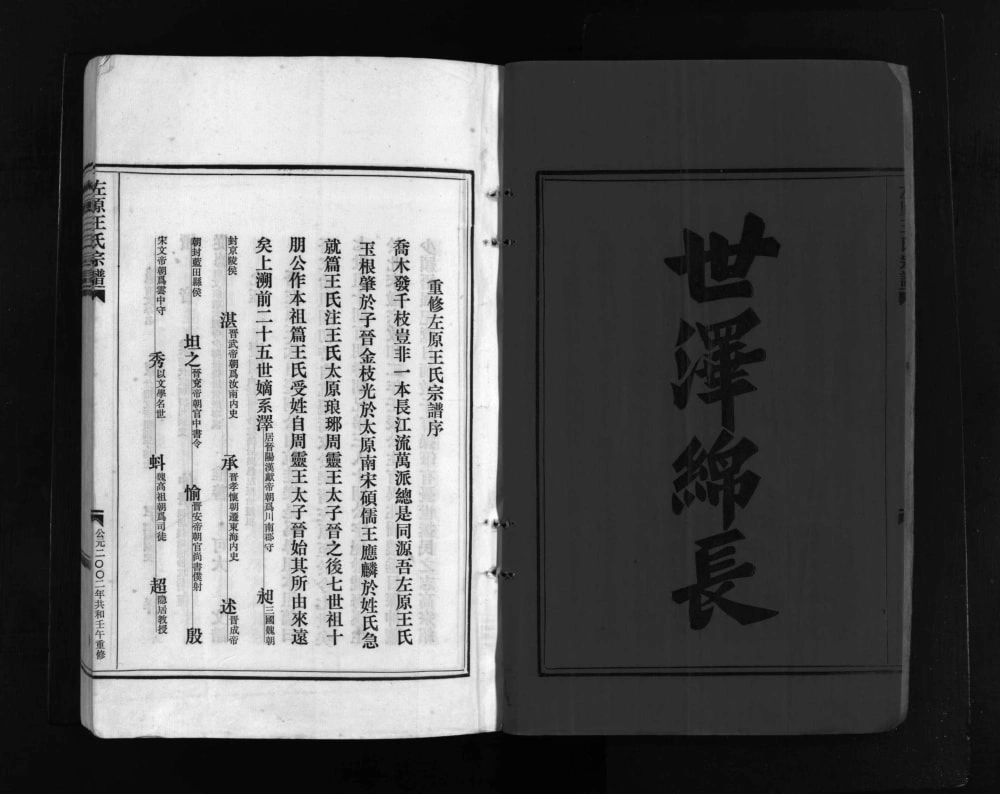 世澤綿長
重修左原王氏宗譜序
喬木發千枝豈非一本長江流萬派總是同源吾左原王氏
玉根肇於子晉金枝光於太原南宋碩儒王應麟於姓氏急
就篇王氏注王氏太原琅琊周靈王太子晉之後七世祖十
朋公作本祖篇王氏受姓自周靈王太子晉始其所由來遠
矣上溯前二十五世嫡系澤居晉陽漢獻帝朝爲川南郡守 昶三國魏朝
封京陵侯 湛晉武帝朝爲汝南內史 承晉孝懷朝遷東海內史 述晉成帝
朝封藍田縣侯 坦之晉寔帝朝官中書令 愉晉安帝朝官尚書僕射 殷
宋文帝朝爲雲中守 秀以文學名世 蚪魏高祖朝爲司徒 超隐居教授
左原王氏宗譜
公元二〇〇二年共和壬午重修